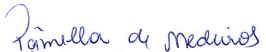 Pâmella de Medeiros